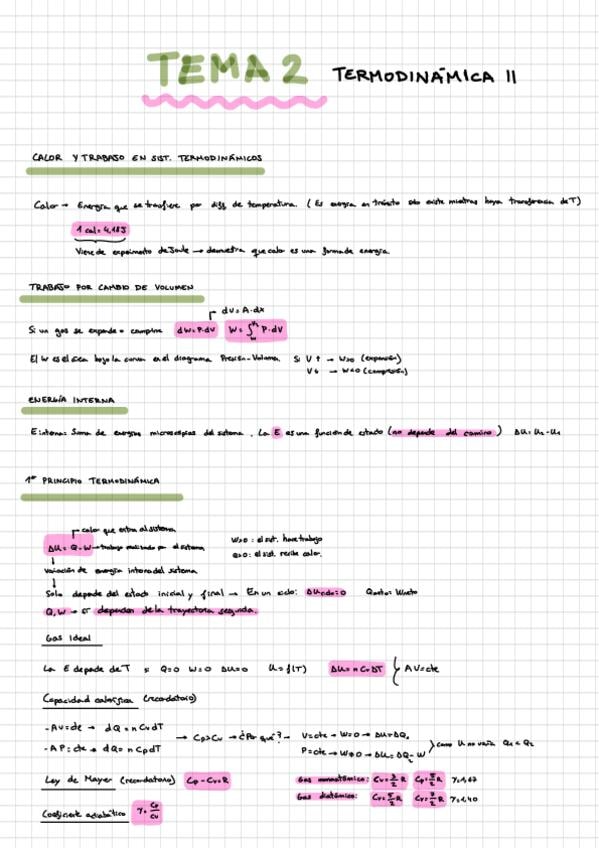 TEMA 2 TERMODINÁMICA II
CALOR Y TRABAJO EN SIST. TERMODINÁMICOS
Calor → Energía que se transfiere por diff de temperatura. (Es energía en tránsito solo existe mientras haya transferencia de T)
1 cal = 4,18J
Viene de experimento de Joule → demuestra que calor es una forma de energía.
TRABAJO POR CAMBIO DE VOLUMEN
dV = A·dx
Si un gas se expande o comprime dW=P·dV W=∫ P·dV
El W es el área bajo la curva en el diagrama Presión-Volumen. Si V↑ → W>0 (expansión)
V↓ → W<0 (compresión)
ENERGÍA INTERNA
E interna: Suma de energías microscópicas del sistema. La E es una función de estado (no depende del camino) ΔU= U₂-U₁
1er PRINCIPIO TERMODINÁMICA
calor que entra al sistema
ΔU = Q-W → trabajo realizado por el sistema
W>0 : el sist. hace trabajo
Q>0: el sist. recibe calor.
variación de energía interna del sistema
Solo depende del estado inicial y final → En un ciclo: ΔU ciclo=0 Qneto= Wneto
Q,W → SÍ dependen de la trayectoria seguida.
Gas Ideal
La E depende de T si Q=0 W=0 ΔU=0 U=f(T) ΔU = n Cv ΔT ΔV=cte
Capacidad calorífica (recordatorio)
-ΔV=cte → dQ = n Cv dT
-ΔP=cte → dQ= n Cp dT
→ Cp>Cv → ¿Por qué? → V=cte → W=0 → ΔU=ΔQ₁
P=cte → W≠0 → ΔU= ΔQ₂-W
como U no varía Q₁ < Q₂
Ley de Mayer (recordatorio) Cp - Cv=R
Gas monoatómico: Cv=3/2 R Cp=5/2 R γ=1,67
Gas diatómico: Cv=5/2 R Cv=7/2 R γ=1,40
Coeficiente adiabático γ= Cp/Cv